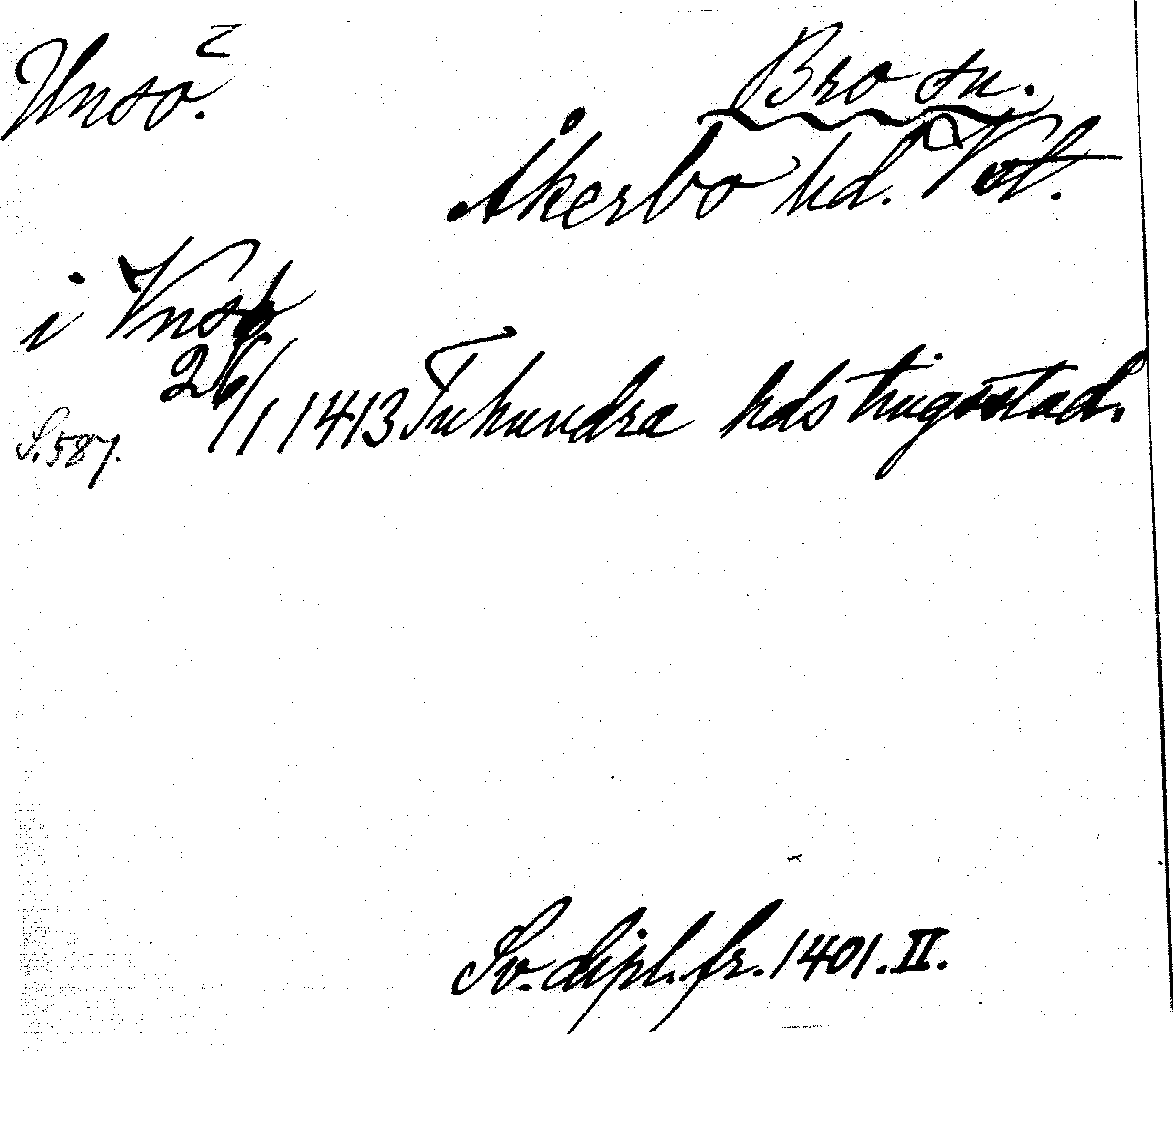 Unsö.
Bro sn.
Åkerbo hd. Vstl.
i Vnsö
26/1 1413 Tuhundra hds tingsstad.
S. 587.
Sv. dipl. fr. 1401. II.